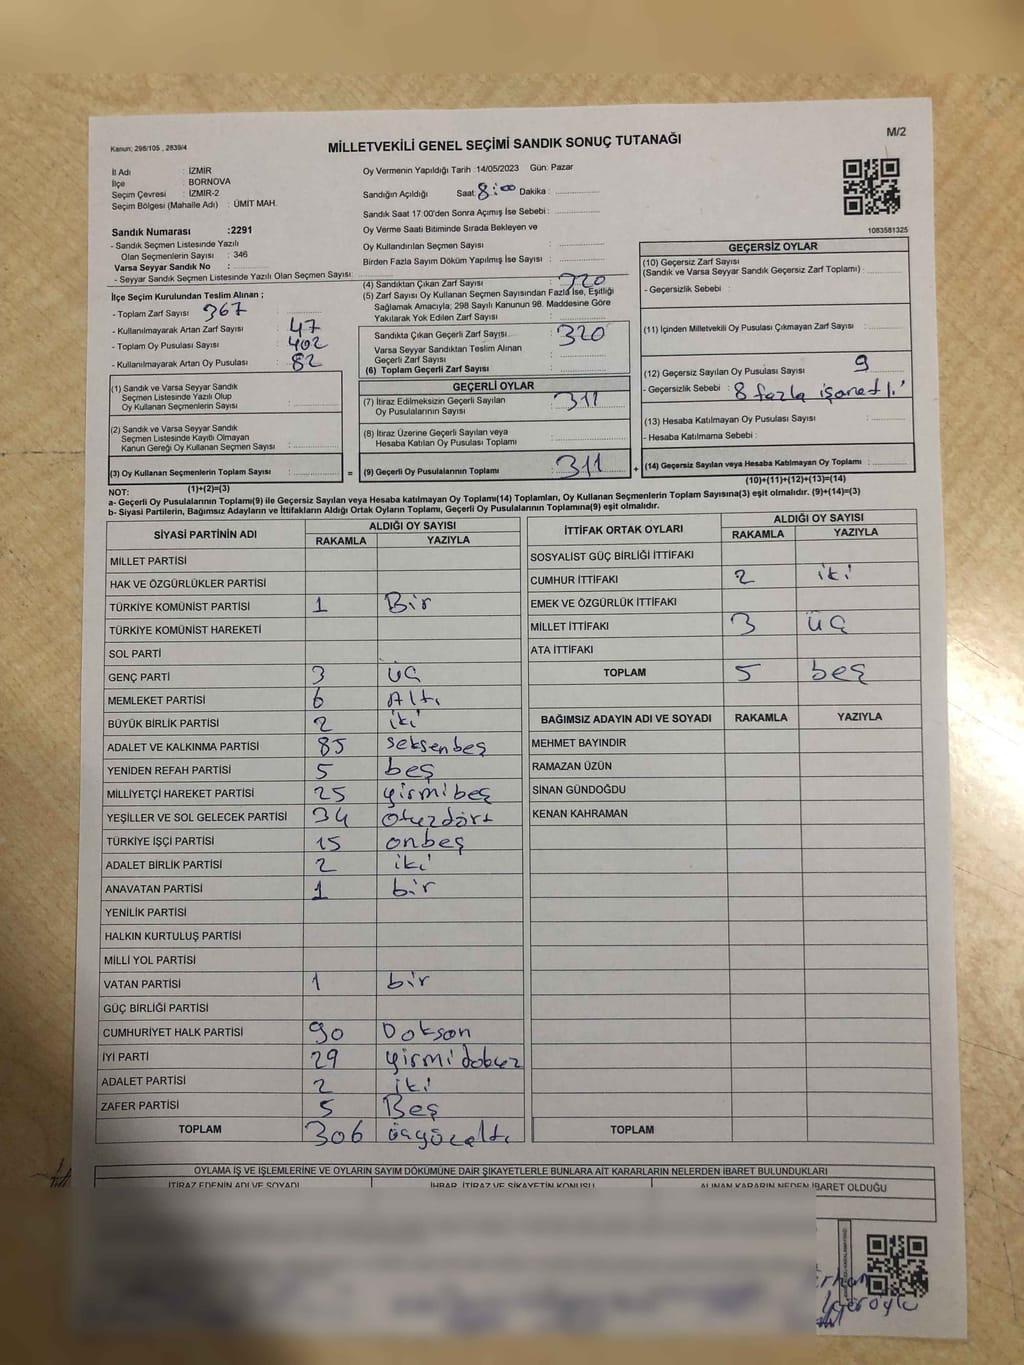 M/2
Kanun; 298/105 , 2839/4
MİLLETVEKİLİ GENEL SEÇİMİ SANDIK SONUÇ TUTANAĞI
İl Adı : İZMİR
İlçe : BORNOVA
Seçim Çevresi : İZMİR-2
Seçim Bölgesi (Mahalle Adı) : ÜMİT MAH.
Sandık Numarası :2291
- Sandık Seçmen Listesinde Yazılı
Olan Seçmenlerin Sayısı : 346
Varsa Seyyar Sandık No :
- Seyyar Sandık Seçmen Listesinde Yazılı Olan Seçmen Sayısı:
İlçe Seçim Kurulundan Teslim Alınan ;
- Toplam Zarf Sayısı 367
- Kullanılmayarak Artan Zarf Sayısı 47
- Toplam Oy Pusulası Sayısı 402
- Kullanılmayarak Artan Oy Pusulası : 82
(1) Sandık ve Varsa Seyyar Sandık
Seçmen Listesinde Yazılı Olup
Oy Kullanan Seçmenlerin Sayısı :
(2) Sandık ve Varsa Seyyar Sandık
Seçmen Listesinde Kayıtlı Olmayan
Kanun Gereği Oy Kullanan Seçmen Sayısı :
(3) Oy Kullanan Seçmenlerin Toplam Sayısı :
(1)+(2)=(3)
Oy Vermenin Yapıldığı Tarih :14/05/2023 Gün: Pazar
Sandığın Açıldığı Saat: 8:00 Dakika :
Sandık Saat 17:00'den Sonra Açılmış İse Sebebi :
Oy Verme Saati Bitiminde Sırada Bekleyen ve
Oy Kullandırılan Seçmen Sayısı :
Birden Fazla Sayım Döküm Yapılmış İse Sayısı :
(4) Sandıktan Çıkan Zarf Sayısı : 320
(5) Zarf Sayısı Oy Kullanan Seçmen Sayısından Fazla İse, Eşitliği
Sağlamak Amacıyla; 298 Sayılı Kanunun 98. Maddesine Göre
Yakılarak Yok Edilen Zarf Sayısı :
Sandıkta Çıkan Geçerli Zarf Sayısı : 320
Varsa Seyyar Sandıktan Teslim Alınan
Geçerli Zarf Sayısı :
(6) Toplam Geçerli Zarf Sayısı :
GEÇERLİ OYLAR
(7) İtiraz Edilmeksizin Geçerli Sayılan
Oy Pusulalarının Sayısı : 311
(8) İtiraz Üzerine Geçerli Sayılan veya
Hesaba Katılan Oy Pusulası Toplamı :
= (9) Geçerli Oy Pusulalarının Toplamı : 311 +
1083581325
GEÇERSİZ OYLAR
(10) Geçersiz Zarf Sayısı
(Sandık ve Varsa Seyyar Sandık Geçersiz Zarf Toplamı) :
- Geçersizlik Sebebi :
(11) İçinden Milletvekili Oy Pusulası Çıkmayan Zarf Sayısı :
(12) Geçersiz Sayılan Oy Pusulası Sayısı : 9
- Geçersizlik Sebebi : 8 fazla işaretli
(13) Hesaba Katılmayan Oy Pusulası Sayısı :
- Hesaba Katılmama Sebebi :
(14) Geçersiz Sayılan veya Hesaba Katılmayan Oy Toplamı :
(10)+(11)+(12)+(13)=(14)
NOT:
a- Geçerli Oy Pusulalarının Toplamı(9) ile Geçersiz Sayılan veya Hesaba katılmayan Oy Toplamı(14) Toplamları, Oy Kullanan Seçmenlerin Toplam Sayısına(3) eşit olmalıdır. (9)+(14)=(3)
b- Siyasi Partilerin, Bağımsız Adayların ve İttifakların Aldığı Ortak Oyların Toplamı, Geçerli Oy Pusulalarının Toplamına(9) eşit olmalıdır.
SİYASİ PARTİNİN ADI ALDIĞI OY SAYISI
RAKAMLA YAZIYLA
MİLLET PARTİSİ
HAK VE ÖZGÜRLÜKLER PARTİSİ
TÜRKİYE KOMÜNİST PARTİSİ 1 Bir
TÜRKİYE KOMÜNİST HAREKETİ
SOL PARTİ
GENÇ PARTİ 3 üç
MEMLEKET PARTİSİ 6 Altı
BÜYÜK BİRLİK PARTİSİ 2 iki
ADALET VE KALKINMA PARTİSİ 85 seksenbeş
YENİDEN REFAH PARTİSİ 5 beş
MİLLİYETÇİ HAREKET PARTİSİ 25 yirmibeş
YEŞİLLER VE SOL GELECEK PARTİSİ 34 otuzdört
TÜRKİYE İŞÇİ PARTİSİ 15 onbeş
ADALET BİRLİK PARTİSİ 2 iki
ANAVATAN PARTİSİ 1 bir
YENİLİK PARTİSİ
HALKIN KURTULUŞ PARTİSİ
MİLLİ YOL PARTİSİ
VATAN PARTİSİ 1 bir
GÜÇ BİRLİĞİ PARTİSİ
CUMHURİYET HALK PARTİSİ 90 Doksan
İYİ PARTİ 29 yirmidokuz
ADALET PARTİSİ 2 iki
ZAFER PARTİSİ 5 Beş
TOPLAM 306 üçyüzaltı
İTTİFAK ORTAK OYLARI ALDIĞI OY SAYISI
RAKAMLA YAZIYLA
SOSYALİST GÜÇ BİRLİĞİ İTTİFAKI
CUMHUR İTTİFAKI 2 iki
EMEK VE ÖZGÜRLÜK İTTİFAKI
MİLLET İTTİFAKI 3 üç
ATA İTTİFAKI
TOPLAM 5 beş
BAĞIMSIZ ADAYIN ADI VE SOYADI RAKAMLA YAZIYLA
MEHMET BAYINDIR
RAMAZAN ÜZÜN
SİNAN GÜNDOĞDU
KENAN KAHRAMAN
TOPLAM
OYLAMA İŞ VE İŞLEMLERİNE VE OYLARIN SAYIM DÖKÜMÜNE DAİR ŞİKAYETLERLE BUNLARA AİT KARARLARIN NELERDEN İBARET BULUNDUKLARI
İTİRAZ EDENİN ADI VE SOYADI İHBAR, İTİRAZ VE ŞİKAYETİN KONUSU ALINAN KARARIN NEDEN İBARET OLDUĞU